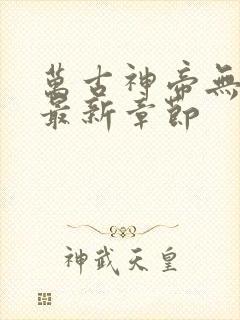 萬古神帝無
最新章節
神武天皇